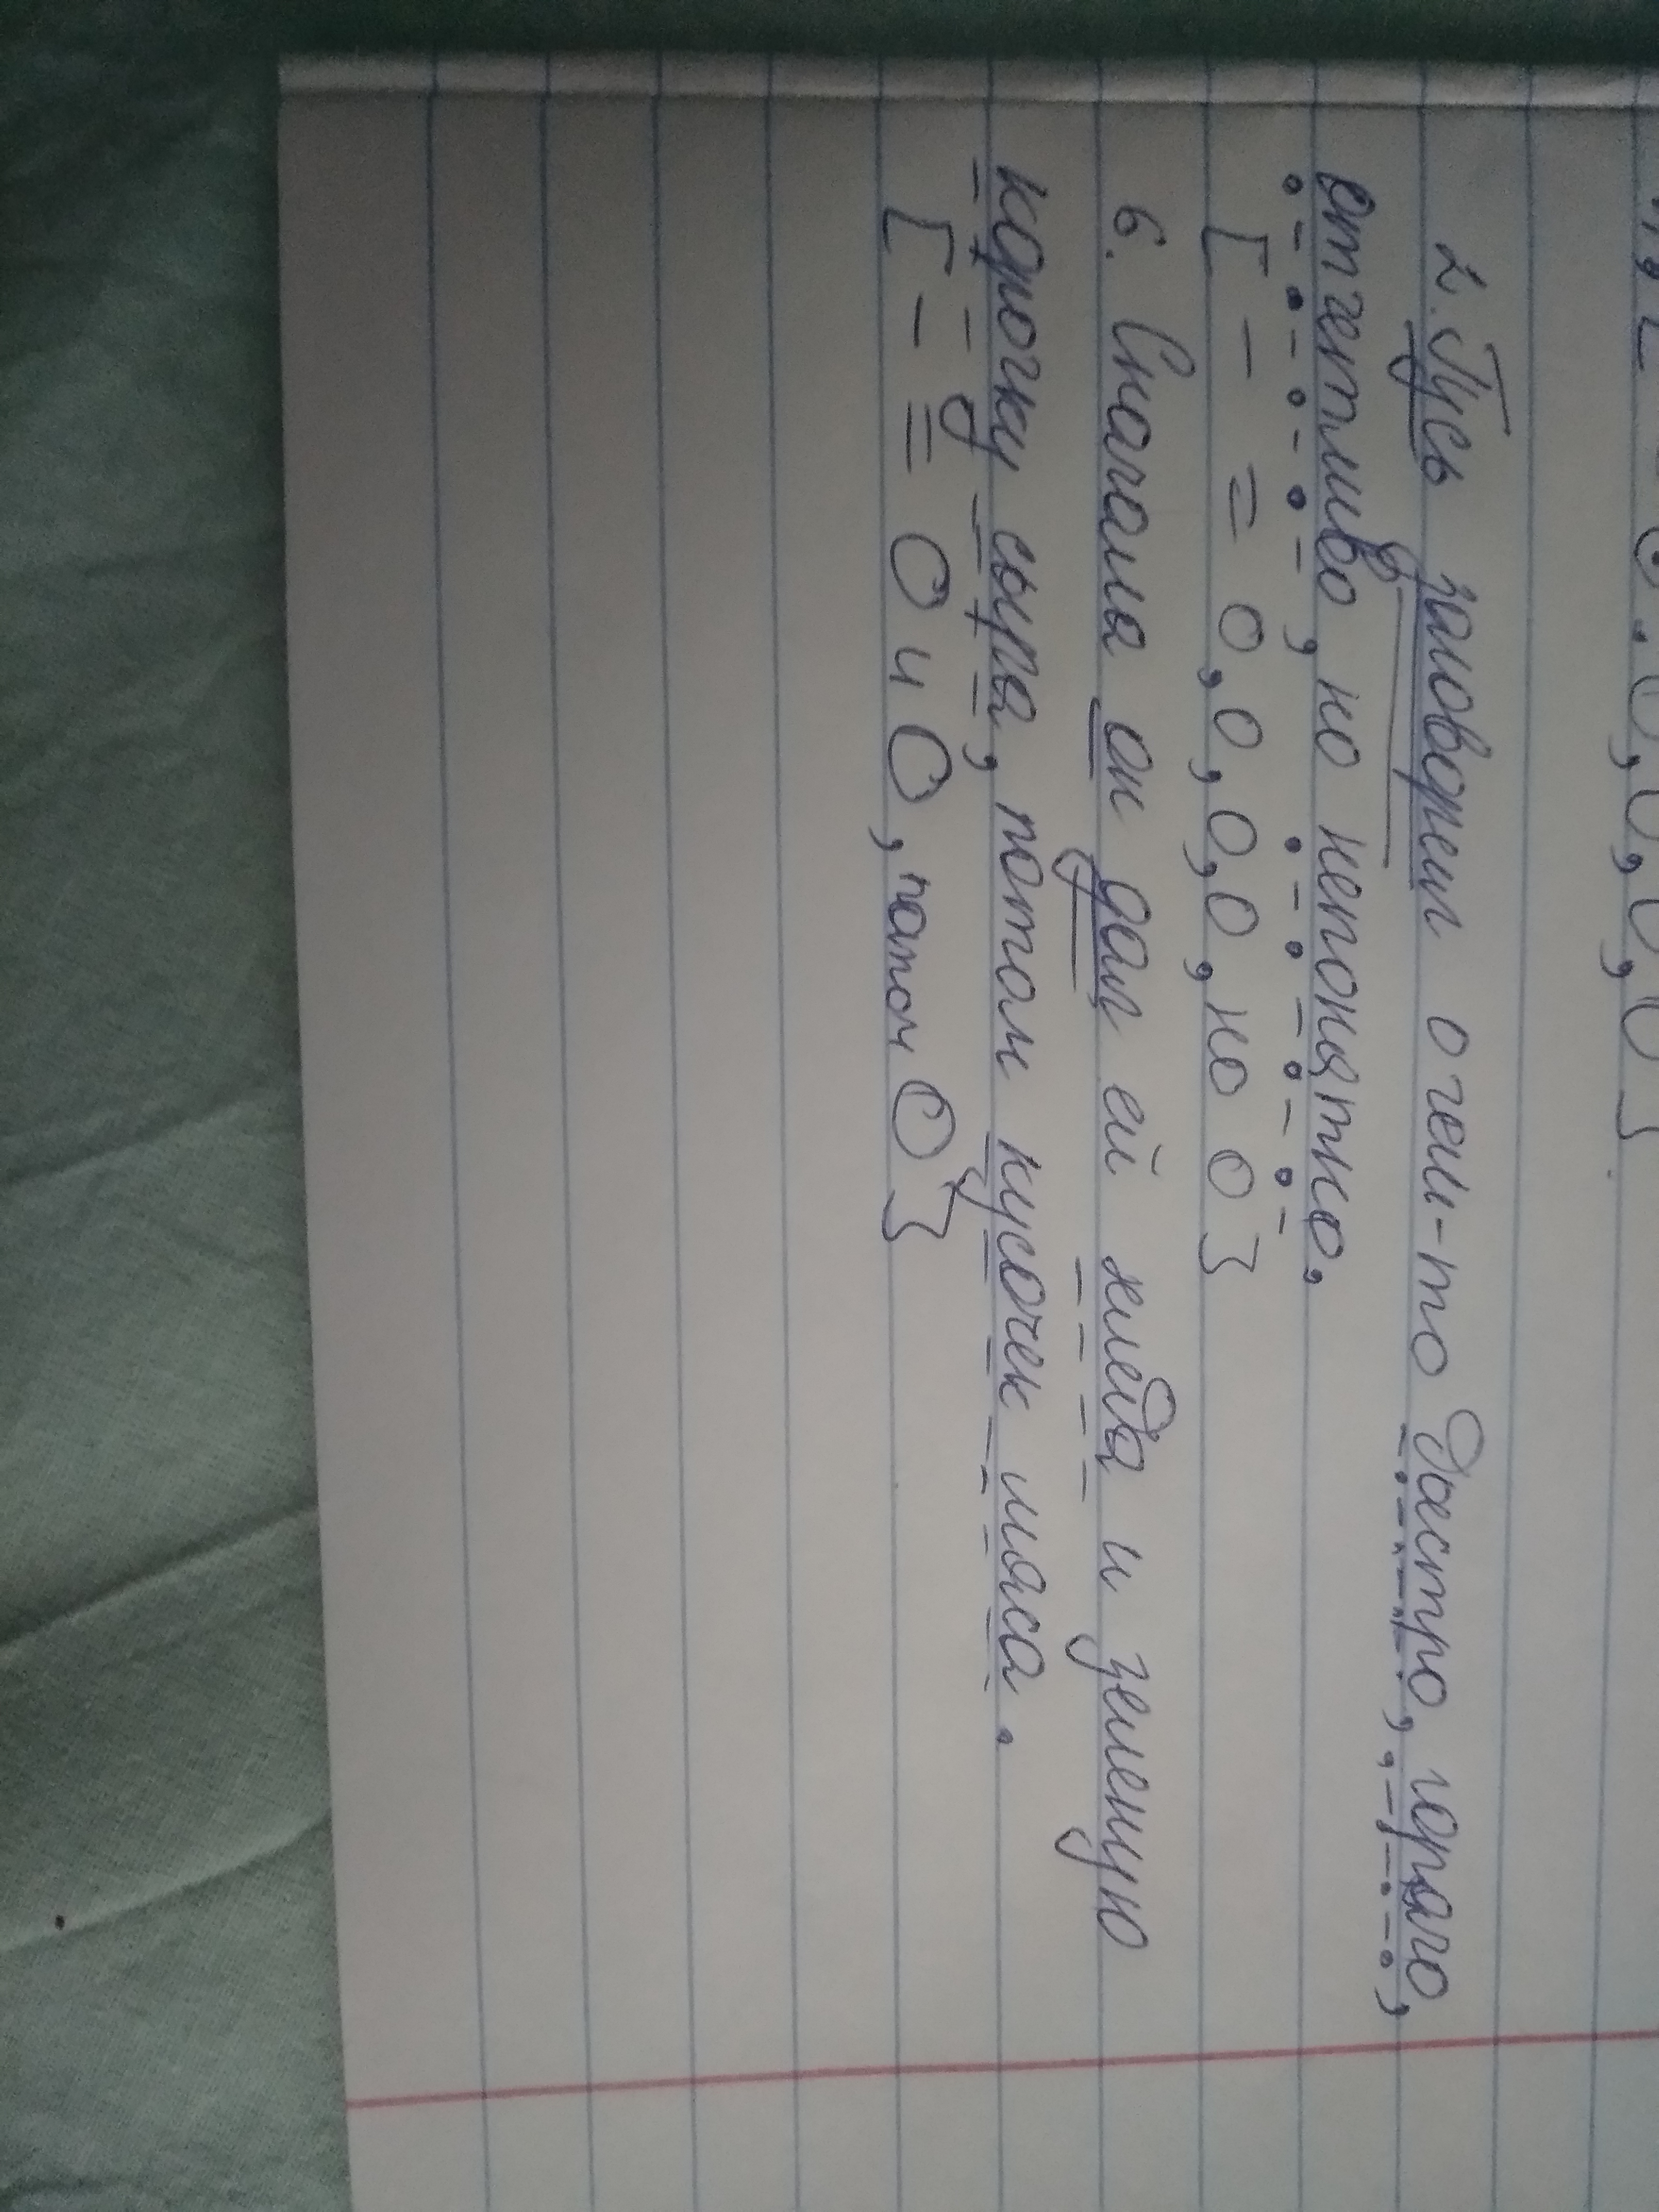 2. Гусь заговорил о чем-то быстро, горячо,
отчетливо, но непонятно.
[ – = О, О, О, О, но О ]
6. Сначала он дал ей хлеба и зеленую
корочку сыра, потом кусочек мяса.
[ – = О и О, потом О ]